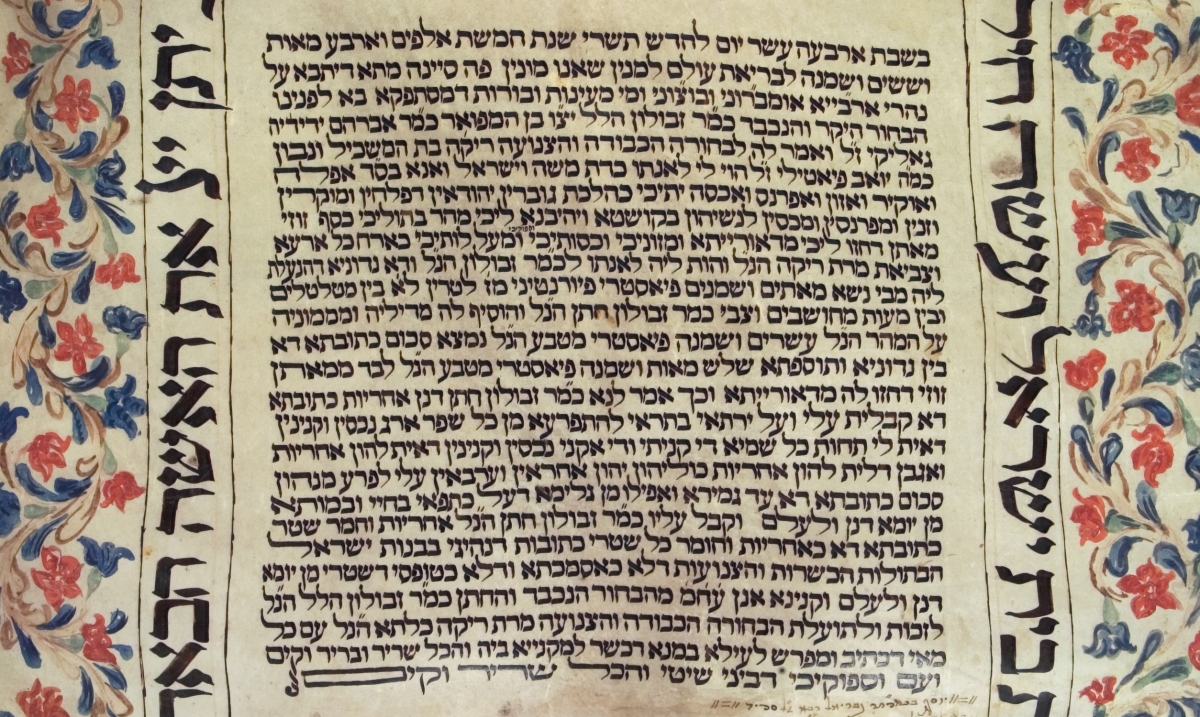 בשבת ארבעה עשר יום לחדש תשרי שנת חמשת אלפים וארבע מאות
וששים ושמנה לבריאת עולם למנין שאנו מונין פה סיינה מתא דיתבא על
נהרי ארבייא אומברוני ובוצוני ומי מעינות ובורות דמסתפקא בא לפנינו
הבחור היקר והנכבד כמ״ר זבולון הלל יצו בן המפואר כמ״ר אברהם ידידיה
גאליקי ז״ל ואמר לה לבחורה הכבודה והצנועה ריקה בת המשכיל ונבון
כמה יואב פיאטילי ז״ל הוי לי לאנתו כדת משה וישראל ואנא בסד אפלח
ואוקיר ואזון ואפרנס ואכסה יתיכי כהלכת גוברין יהודאין דפלחין ומוקרין
וזנין ומפרנסין ומכסין לנשיהון בקושטא ויהיבנא ליכי מהר בתוליכי כסף זוזי
מאתן דחזו ליכי מדאורייתא ומזוניכי וכסותיכי וספוקיכי ומעל לותיכי כארח כל ארעא
וצביאת מרת ריקה הנ״ל והות ליה לאנתו לכמר זבולון הנ״ל ודא נדוניא דהנעלת
ליה מבי נשא מאתים ושמנים פיאסטרי פיורנטיני מז לטרין לא בין מטלטלים
ובין מעות מחושבים וצבי כמר זבולון חתן הנ״ל והוסיף לה מדיליה ומממוניה
על המהר הנ״ל עשרים ושמנה פיאסטרי מטבע הנ״ל נמצא סכום כתובתא דא
בין נדוניא ותוספתא שלש מאות ושמנה פיאסטרי מטבע הנ״ל לבד ממאתן
זוזי דחזו לה מדאורייתא וכך אמר לנא כמ״ר זבולון חתן דנן אחריות כתובתא
דא קבלית עלי ועל ירתאי בתראי להתפרעא מן כל שפר ארג נכסין וקנינין
דאית לי תחות כל שמיא די קניתי ודי אקני נכסין וקנינין דאית להון אחריות
ואגבן דלית להון אחריות כוליהון יהון אחראין וערבאין עלי לפרע מנהון
סכום כתובתא דא עד גמירא ואפילו מן גלימא דעל כתפאי בחיי ובמותא
מן יומא דנן ולעלם וקבל עליו כמ״ר זבולון חתן הנ״ל אחריות וחמר שטר
כתובתא דא כאחריות וחומר כל שטרי כתובות דנהיגי בבנות ישראל
הבתולות הכשרות והצנועות דלא כאסמכתא ודלא כטופסי דשטרי מן יומא
דנן ולעלם וקנינא אנן עח״מ מהבחור הנכבד והחתן כמ״ר זבולון הלל הנ״ל
לזכות ולתועלת הבחורה הכבודה והצנועה מרת ריקה כלתא הנ״ל עם כל
מאי דכתיב ומפרש לעילא במנא דכשר למקנייא ביה והכל שריר ובריר וקים
ועם וספוקיכי דביני שיטי והכל שריר וקים
יתן ייי את האשה הבאה
לבית ישראל ועשה חיל